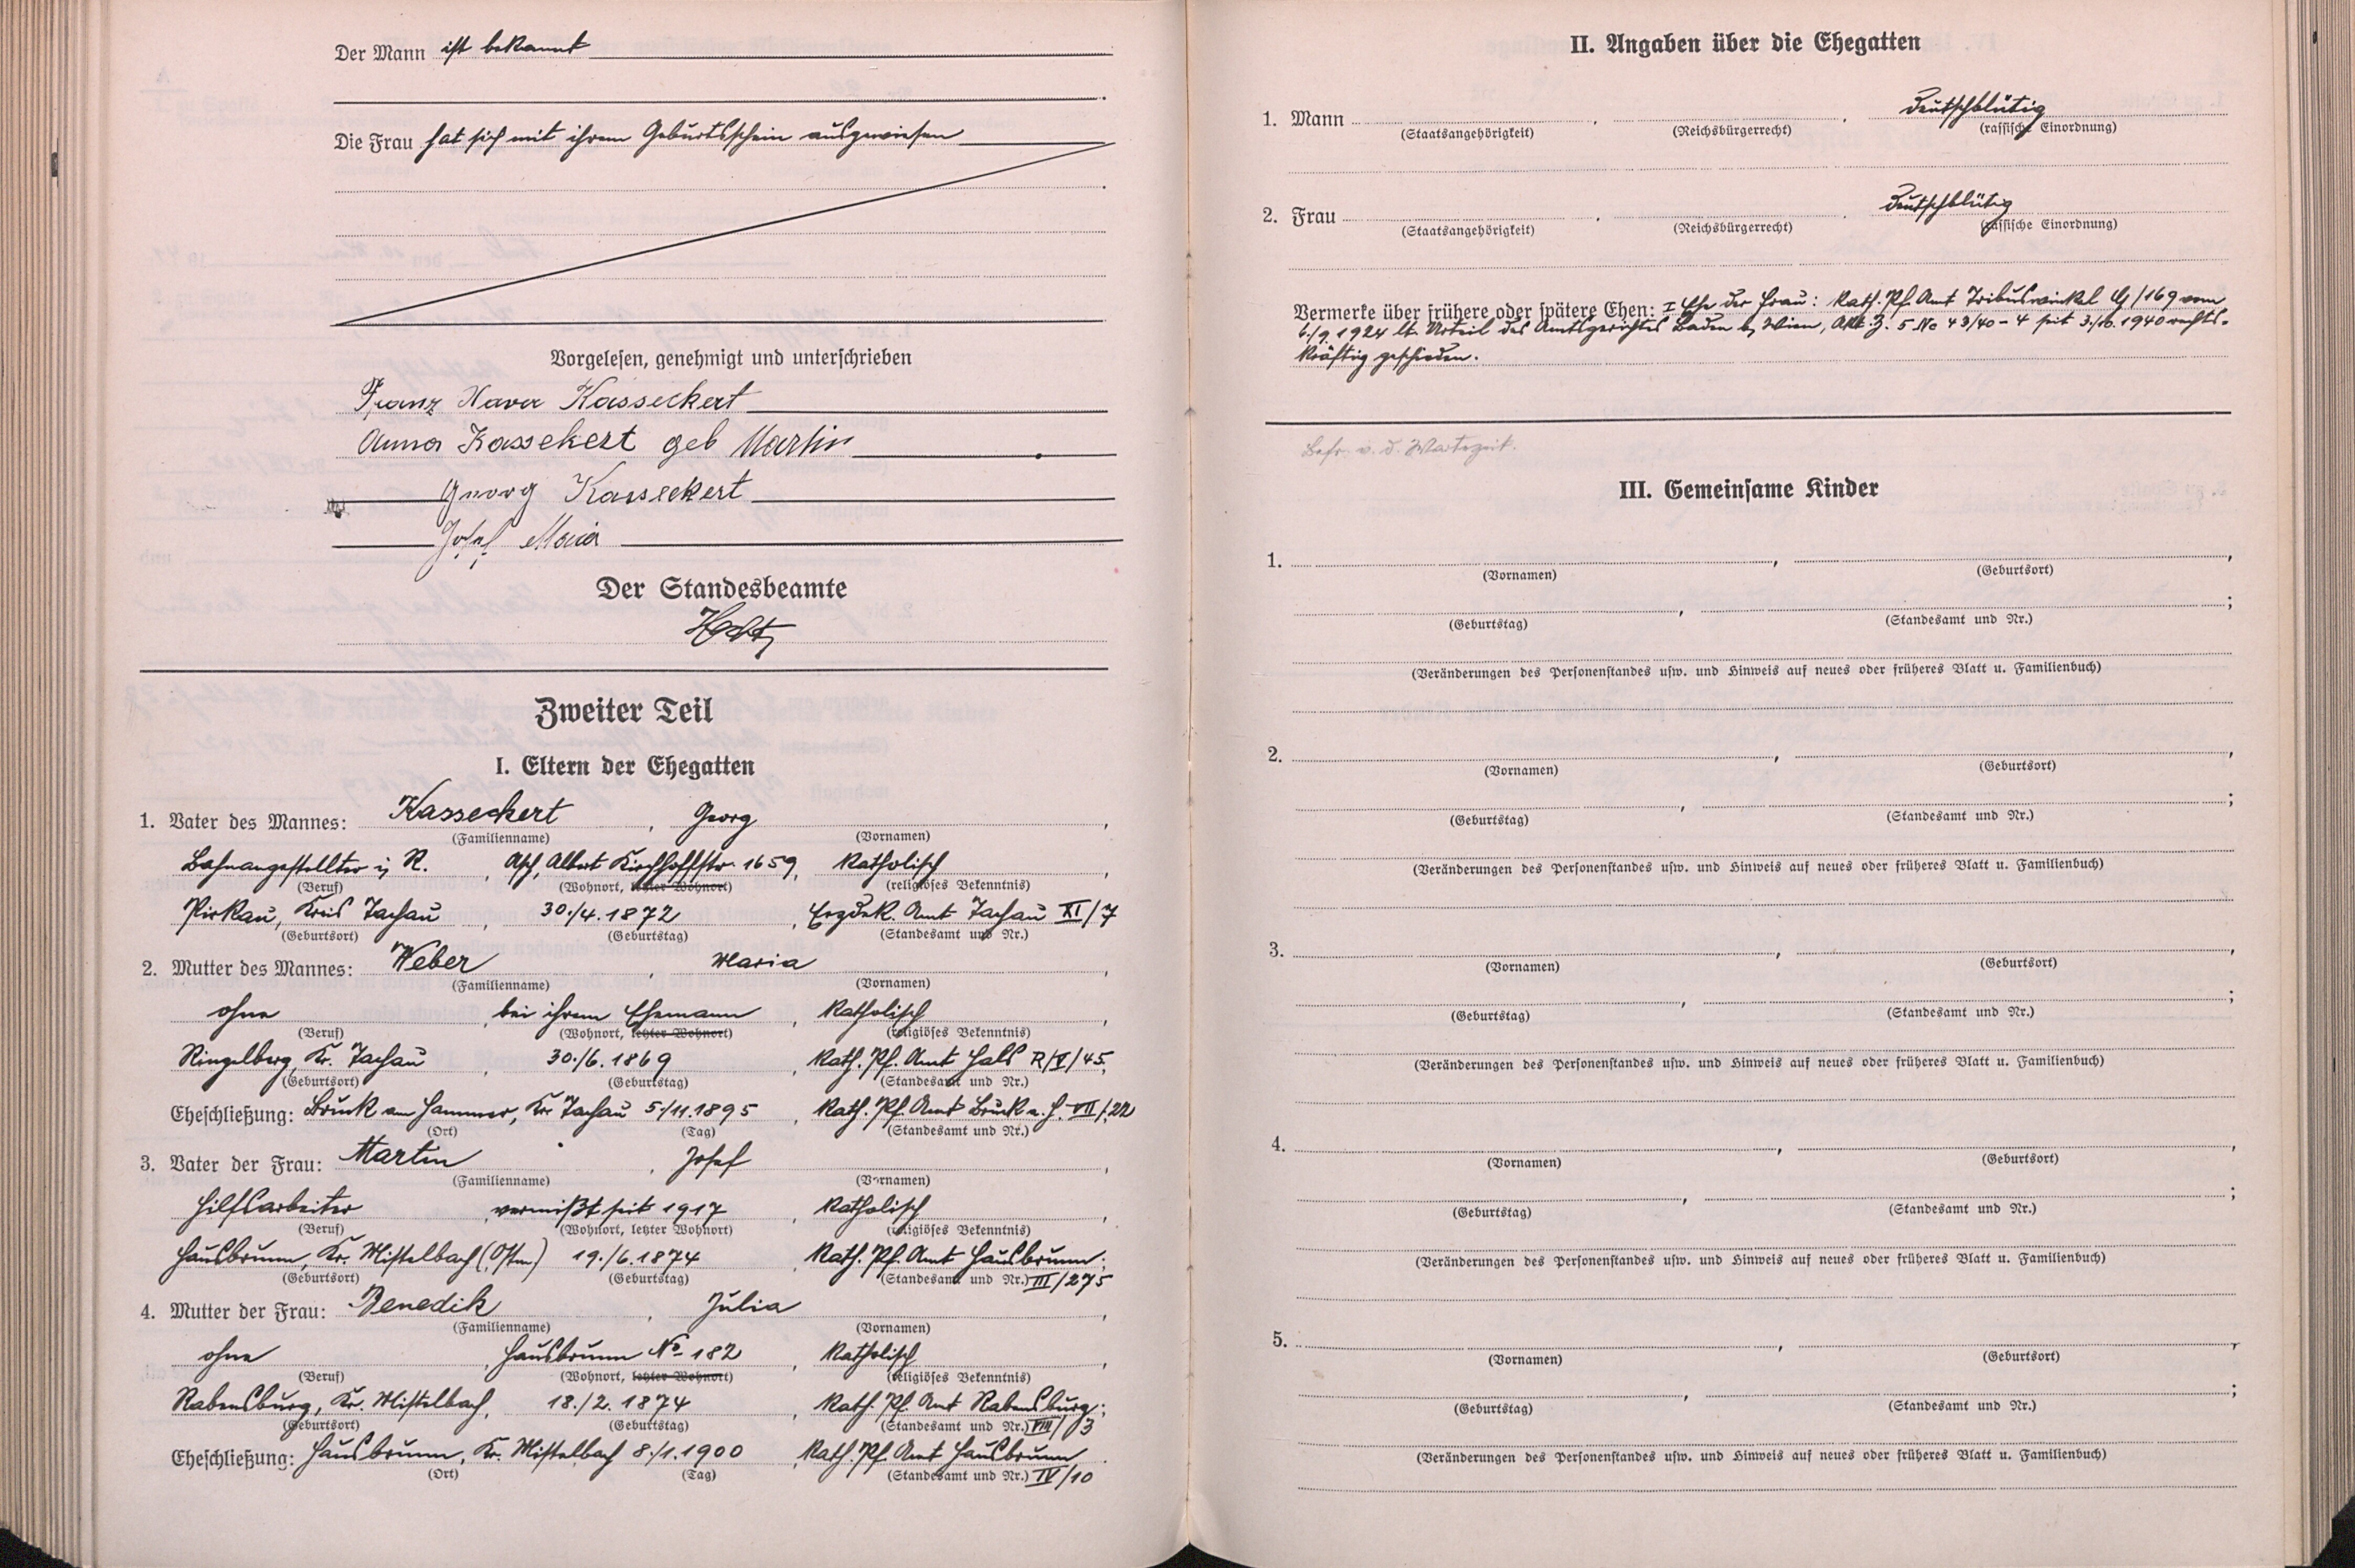 Der Mann ist bekannt
Die Frau hat sich mit ihrem Geburtsschein ausgewiesen
Vorgelesen, genehmigt und unterschrieben
Franz Xaver Kasseckert
Anna Kassekert geb Martin
Georg Kasseckert
Josef Maier
Der Standesbeamte
Zweiter Teil
I. Eltern der Ehegatten
1. Vater des Mannes: Kasseckert, Georg,
(Familienname) (Vornamen)
Bahnangestellter i. R., Asch, Albert Kirchhoffstr. 1659, katholisch,
(Beruf) (Wohnort, letzter Wohnort) (religiöses Bekenntnis)
Pirkau, Kreis Tachau, 30./4. 1872, Erzdek. Amt Tachau XI/7
(Geburtsort) (Geburtstag) (Standesamt und Nr.)
2. Mutter des Mannes: Weber, Maria,
(Familienname) (Vornamen)
ohne, bei ihrem Ehemann, katholisch,
(Beruf) (Wohnort, letzter Wohnort) (religiöses Bekenntnis)
Ringelberg, Kr. Tachau, 30./6. 1869, Kath. Pf. Amt Hals R/V/45.
(Geburtsort) (Geburtstag) (Standesamt und Nr.)
Eheschließung: Bruck am Hammer, Kr. Tachau 5./11. 1895, Kath. Pf. Amt Bruck a. H. VII/22
(Ort) (Tag) (Standesamt und Nr.)
3. Vater der Frau: Martin, Josef,
(Familienname) (Vornamen)
Hilfsarbeiter, vermißt seit 1917, katholisch,
(Beruf) (Wohnort, letzter Wohnort) (religiöses Bekenntnis)
Hausbrunn, Kr. Mistelbach (Ostm) 19./6. 1874, Kath. Pf. Amt Hausbrunn;
(Geburtsort) (Geburtstag) (Standesamt und Nr.) III/275
4. Mutter der Frau: Benedik, Julia,
(Familienname) (Vornamen)
ohne, Hausbrunn No 182, katholisch,
(Beruf) (Wohnort, letzter Wohnort) (religiöses Bekenntnis)
Rabensburg, Kr. Mistelbach, 18./2. 1874, Kath. Pf. Amt Rabensburg;
(Geburtsort) (Geburtstag) (Standesamt und Nr.) VIII/
Eheschließung: Hausbrunn, Kr. Mistelbach 8./1. 1900, Kath. Pf. Amt Hausbrunn
(Ort) (Tag) (Standesamt und Nr.) IV/10
II. Angaben über die Ehegatten
1. Mann , , deutschblütig
(Staatsangehörigkeit) (Reichsbürgerrecht) (rassische Einordnung)
2. Frau , , deutschblütig
(Staatsangehörigkeit) (Reichsbürgerrecht) (rassische Einordnung)
Vermerke über frühere oder spätere Ehen: I Ehe der Frau: Kath. Pf. Amt Tribuswinkel /169 vom
6./9. 1924 lt. Urteil des Amtsgerichtes Baden b. Wien, Akt. Z. 5 Nc 43/40-4 seit 3./10. 1940 rechts-
kräftig geschieden.
Befr. v. d. Wartezeit.
III. Gemeinsame Kinder
1. , ,
(Vornamen) (Geburtsort)
, ;
(Geburtstag) (Standesamt und Nr.)
(Veränderungen des Personenstandes usw. und Hinweis auf neues oder früheres Blatt u. Familienbuch)
2. , ,
(Vornamen) (Geburtsort)
, ;
(Geburtstag) (Standesamt und Nr.)
(Veränderungen des Personenstandes usw. und Hinweis auf neues oder früheres Blatt u. Familienbuch)
3. , ,
(Vornamen) (Geburtsort)
, ;
(Geburtstag) (Standesamt und Nr.)
(Veränderungen des Personenstandes usw. und Hinweis auf neues oder früheres Blatt u. Familienbuch)
4. , ,
(Vornamen) (Geburtsort)
, ;
(Geburtstag) (Standesamt und Nr.)
(Veränderungen des Personenstandes usw. und Hinweis auf neues oder früheres Blatt u. Familienbuch)
5. , ,
(Vornamen) (Geburtsort)
, ;
(Geburtstag) (Standesamt und Nr.)
(Veränderungen des Personenstandes usw. und Hinweis auf neues oder früheres Blatt u. Familienbuch)